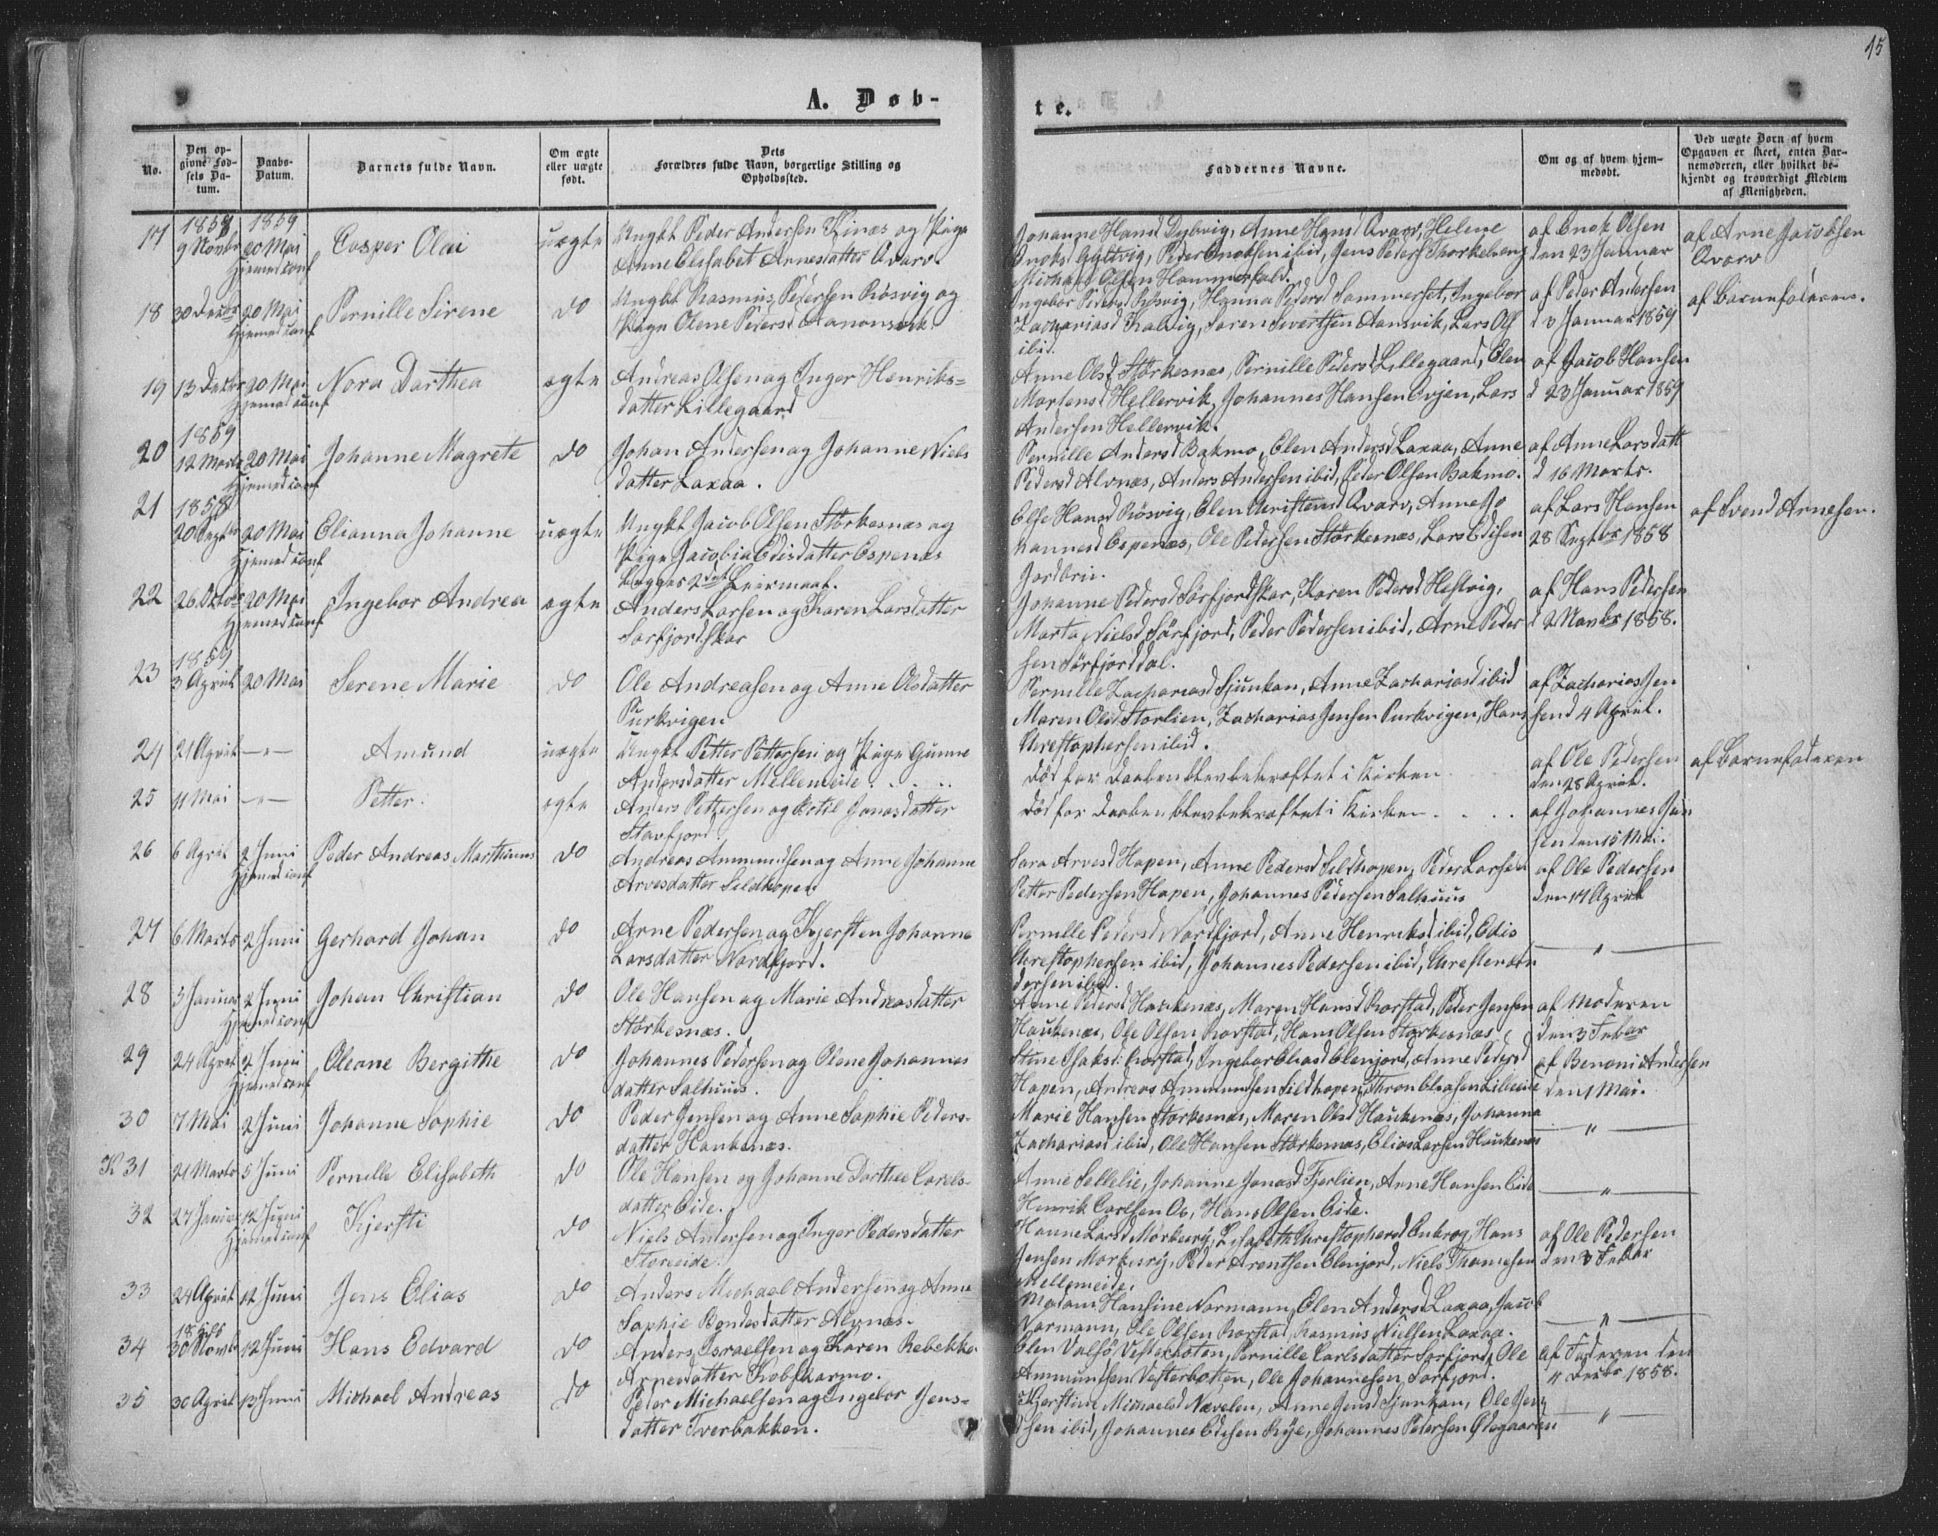 15
A. Døb-
te.
No.
Den op-
givne Fød-
sels Da-
tum.
Daabs-
Datum.
Barnets fulde Navn.
Om ægte
eller uægte
født.
Dets
Forældres fulde Navn, borgerlige Stilling og
Opholdssted.
Faddernes Navne.
Om og af hvem hjem-
medøbt.
Ved uægte Børn af hvem
Opgaven er skeet, enten Bar-
nemoderen, eller hvilket be-
kjendt og troværdigt Medlem
af Menigheden.
17 1858 9 Novbr 1859 20 Mai Hjemed conf Casper Olai uægte Ungkl Peder Andersen Kines og Pige
Anne Elisabet Arnesdatter Qvarv.
Johanne Hansd Dybvig, Anne Hansd Qvarv, Helene
Enoks Gyltvig, Peder Enoksen ibid, Jens Peders
Michael Olsen Hammerfald.
af Enok Olsen
den 23 Januar
af Arne Jacobsen
Qvarv
18 30 Decbr 20 Mai Hjemed conf Pernille Sirene do Ungkl Rasmus Pedersen Røsvig og
Pige Olene Pedersd Aanonsvik
Ingebor Peders Røsvig, Hanna Pedersd Sommerset, Ingebor
Zachariasd Kalvig, Søren Sivertsen Aansvik, Lars Ols
ibid.
af Peder Andersen
d 3 Januar 1859
af Barnefaderen.
19 13 Decbr 20 Mai Hjemed conf Nora Darthea ægte Andreas Olsen og Inger Henriks-
datter Lillegaard
Anne Olsd Størkesnæs, Pernille Peders Lillegaard, Elen
Mortensd Hellervik, Johannes Hansen Evjen, Lars
Andersen Hellervik.
af Jacob Hansen
d 23 Januar 1859
20 1859 12 Marts 20 Mai Hjemed conf Johanne Magrete do Johan Andersen og Johanne Niels
datter Laxaa.
Pernille Andersd Bakmo, Elen Andersd Laxaa, Anne
Pedersd Alvnæs, Anders Andersen ibid, Peder Olsen Bakmo.
af Anne Larsdatt
d 16 Marts.
21 1858 20 Septbr 20 Mai Hjemed conf Elianna Johanne uægte Ungkl Jacob Olsen Størkesnæs og
Pige Jacobia Edisdatter Espenæs
begges 2det Leiermaal.
Else Hansd Røsvig, Elen Christensd Qvarv, Anne Jo
hannesd Espenæs, Ole Pedersen Størkesnæs, Lars Edisen
Jordbru.
af Lars Hansen
28 Septbr 1858
af Svend Arnesen.
22 26 Octbr 20 Mai Hjemed conf Ingebor Andrea ægte Anders Larsen og Karen Larsdatter
Sørfjordskar
Johanne Pedersd Sørfjordskar, Karen Pedersd Hestvig,
Marta Nielsd Sørfjord, Peder Pedersen ibid, Arne Peder
sen Sørfjorddal.
af Hans Pedersen
d 2 Novbr 1858.
23 1859 3 April 20 Mai Serene Marie do Ole Andreasen og Anne Olsdatter
Purkvigen
Pernille Zachariasd Sjunkan, Anne Zachariasd ibid
Maren Olsd Storlien, Zacharias Jensen Purkvigen, Hans
Christophersen ibid.
af Zacharias Jen
sen d 4 April.
24 21 April — " — Amund uægte Ungkl Petter Pettersen og Pige Gunne
Andersdatter Mellemeide
Død før Daaben blev bekræftet i Kirken
af Ole Pedersen
den 28 April.
af Barnefaderen
25 11 Mai — " — Petter. ægte Anders Pettersen og Jonasdatter
Stavfjord.
Død før Daaben blev bekræftet i Kirken
af Johannes Jen
sen den 15 Mai.
26 6 April 2 Juni Hjemed conf Peder Andreas Marthinus do Andreas Ammundsen og Anne Johanne
Arvesdatter Sildhopen
Sara Arvesd Hopen, Anne Pedersd Sildhopen, Peder Larsen
Petter Pedersen Hopen, Johannes Pedersen Salhuus
af Ole Pedersen
den 17 April
27 6 Marts 2 Juni Gerhard Johan do Arne Pedersen og Kjersten Johanne
Larsdatter Nordfjord.
Pernille Pedersd Nordfjord, Anne Henriksd ibid, Edis
Christophersen ibid, Johannes Pedersen ibid, Christen An
dersen ibid.
— " —
28 3 Januar 2 Juni Hjemed conf Johan Christian do Ole Hansen og Marie Andreasdatter
Størkesnæs.
Anne Pedersd Haukenæs, Maren Hansd Korstad, Peder Jensen
Haukenæs, Ole Olsen Korstad, Hans Olsen Størkesnæs
af Moderen
den 3 Febar
29 24 April 2 Juni Hjemed conf Oleane Bergithe do Johannes Pedersen og Olene Johannes
datter Salhuus.
Stine Isaksd Korstad, Ingebor Eliasd Elenjord, Anne Pedersd
Hopen, Andreas Ammundsen Sildhopen, Thron Eliasen Lileeide
af Benoni Andersen
den 1 Mai.
30 7 Mai 2 Juni Johanne Sophie do Peder Jensen og Anne Sophie Peders-
datter Haukenæs.
Marie Hansen Størkesnæs, Maren Olsd Haukenæs, Johanna
Zachariasd ibid, Ole Hansen Størkesnæs, Elias Larsen Haukenæs
— " —
K 31 21 Marts 5 Juni Pernille Elisabeth do Ole Hansen og Johanne Dorthea Carels-
datter Eide.
Anne Sellelie, Johanne Jonasd Fjerlien, Arne Hansen Eide
Henrik Carlsen Os, Hans Olsen Eide.
— " —
32 27 Januar 12 Juni Hjemed conf Kjersti do Niels Andersen og Inger Pedersdatter
Storeide.
Hanne Larsd Mørkesrij, Lisabeth Christophersd Enkrog, Hans
Jensen Mørkesrij, Peder Arentsen Elenjord, Niels Thomesen
Mellemeide.
af Ole Pedersen
den 3 Febar
33 24 April 12 Juni Jens Elias do Anders Michael Andersen og Anne
Sophie Bendesdatter Alvnæs.
Madam Hansine Normann, Elen Andersd Laxaa, Jacob
Normann, Ole Olsen Korstad, Rasmus Nielsen Laxaa.
— " —
34 1858 30 Novb 12 Juni Hans Edvard do Anders Israelsen og Karen Rebekka
Arnesdatter Kobskarmo.
Elen Valsø Vesterbotten, Pernille Carlsdatter Sørfjord, Ole
Ammundsen Vesterbotten, Ole Johannesen Sørfjord.
af Faderen den
11 Decbr 1858.
35 30 April 13 Juni Michael Andreas do Peter Michaelsen og Ingebor Jens-
datter Tverbakken.
Kjerstine Michaelsd Nævelen, Anne Jensd Sjunkan, Ole Jen
sen ibid, Johannes Edisen Rye, Johannes Petersen Ødegaarden
— " —